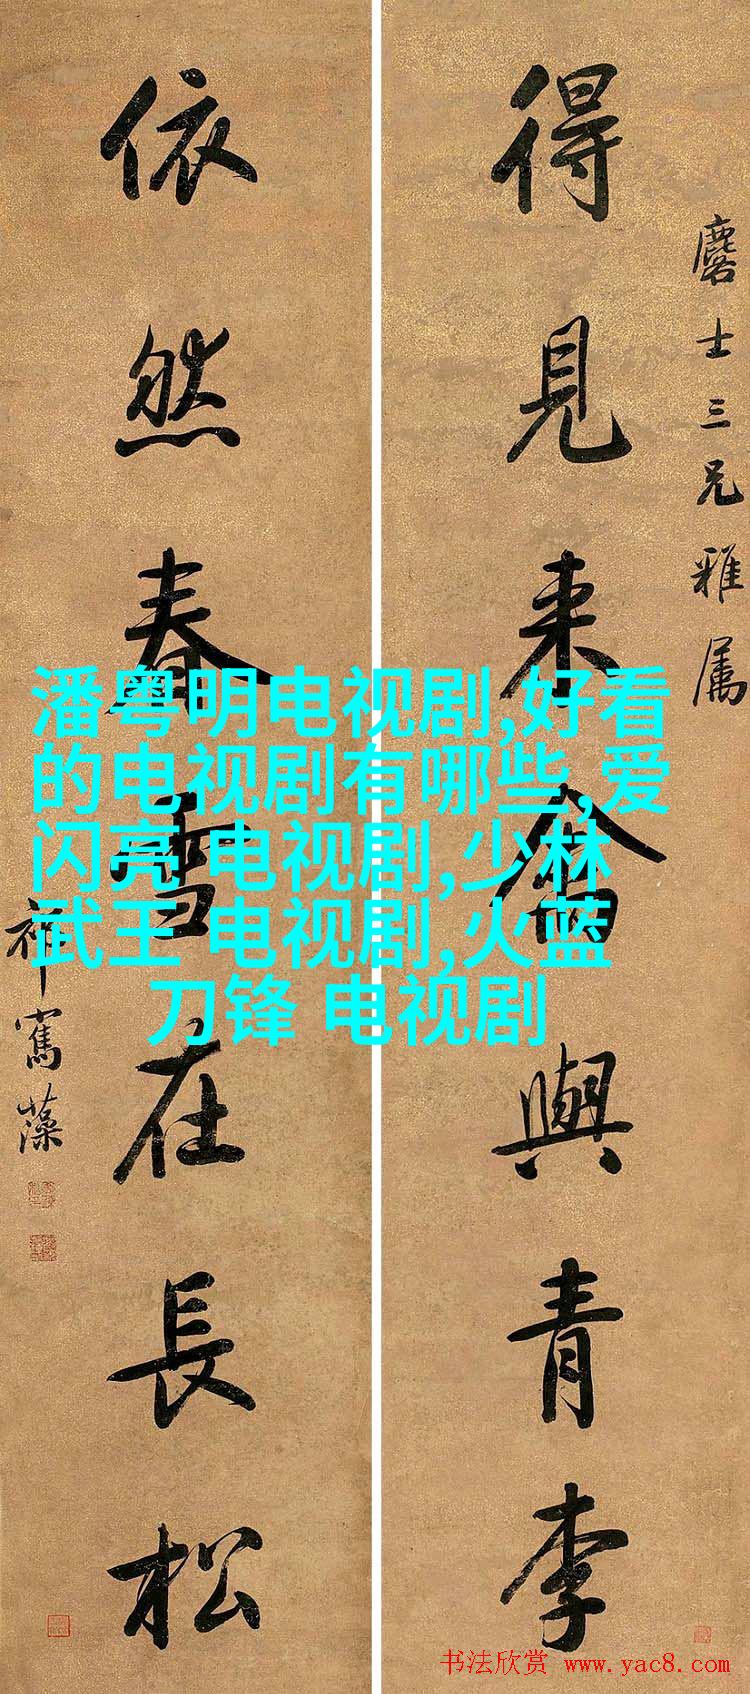 麐士三兄雅属
得見来禽與青李
依然春雪在長松
祁寯藻
潘粤明电视剧,好看
的电视剧有哪些,爱
闪亮 电视剧,少林
武王 电视剧,火蓝
刀锋 电视剧
书法欣赏 www.yac8.com